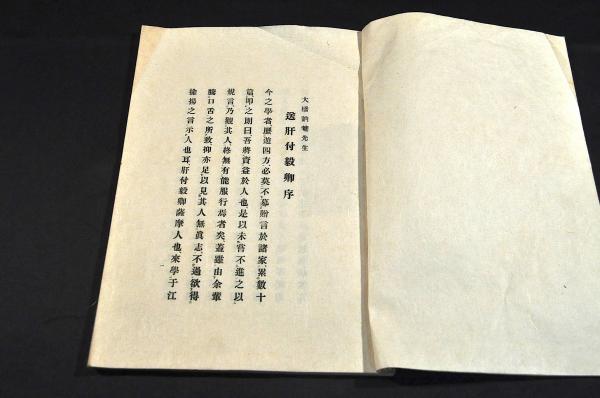 大橋訥菴先生
送肝付毅卿序
今之學者歷遊四方、必莫不募贈言於諸家、累數十
篇、叩之則曰吾將資益於人也、是以未嘗不進之以
規言、乃觀其人、終無有能服行焉者矣、蓋雖由余輩
騰口舌之所致、抑亦足以見其人無眞志、不過欲得
揄揚之言示人也耳、肝付毅卿薩摩人也、來學于江